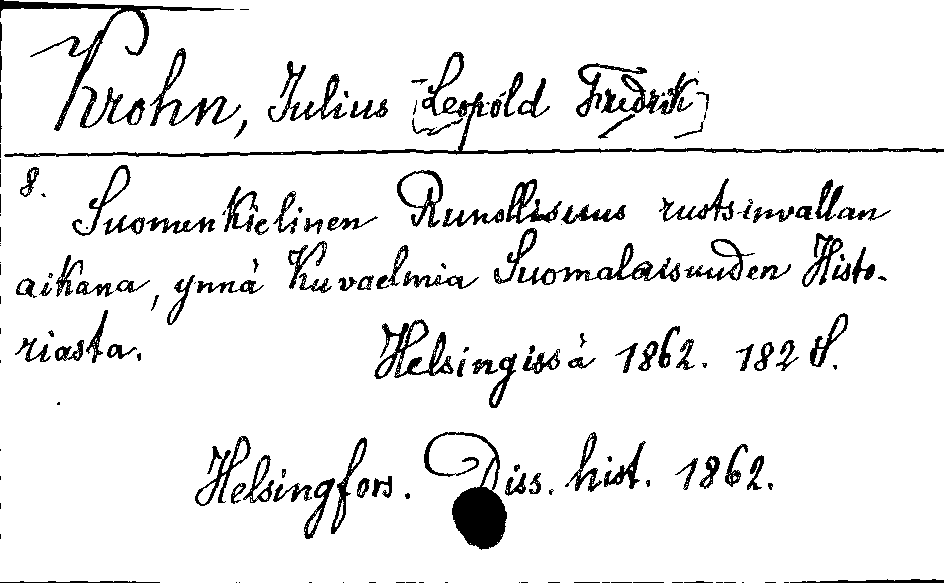 Krohn, Julius [Leopold Fredrik]
8.
Suomenkielinen Runollisuus ruotsinvallan
aikana, ynnä Kuvaelmia Suomalaisuuden Histo-
riasta. Helsingissä 1862. 182 S.
Helsingfors. Diss. hist. 1862.